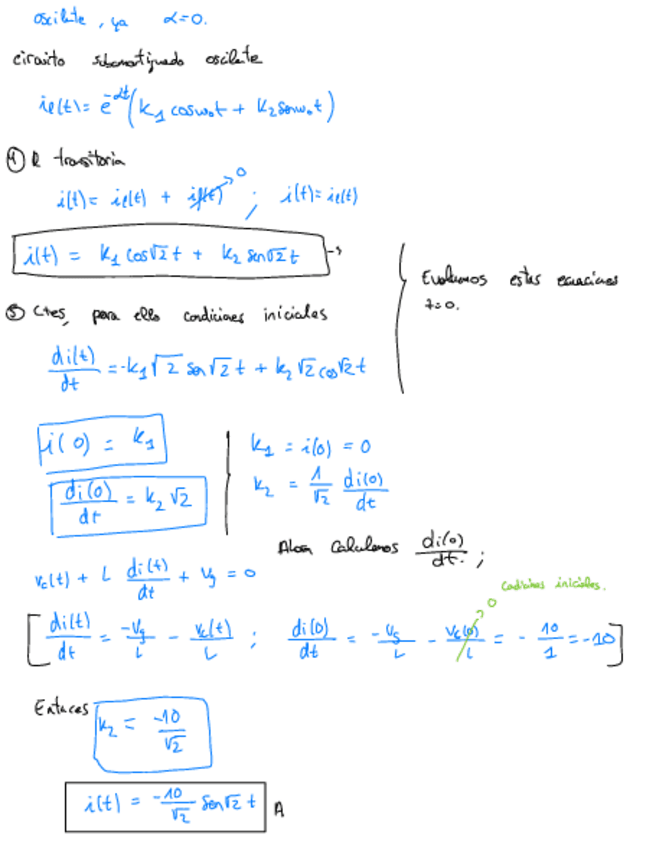 oscilante, ya α=0.
circuito subamortiguado oscilante
ie(t) = e^-αt (k1 cosw₀t + k2 senw₀t)
④ R transitoria
i(t) = ie(t) + if(t) → 0 ; i(t) = ie(t)
i(t) = k1 cos√2 t + k2 sen√2 t →
Evaluamos estas ecuaciones
t=0.
⑤ Ctes, para ello condiciones iniciales
di(t)/dt = -k1 √2 sen √2 t + k2 √2 cos √2 t
i(0) = k1
k1 = i(0) = 0
di(0)/dt = k2 √2
k2 = 1/√2 di(0)/dt
Ahora calculamos di(0)/dt. ;
vc(t) + L di(t)/dt + Vg = 0
0 Condiciones iniciales.
[di(t)/dt = -Vg/L - vc(t)/L ; di(0)/dt = -Vg/L - vc(0)/L = - 10/1 = -10]
Entonces
k2 = -10/√2
i(t) = -10/√2 sen√2 t A